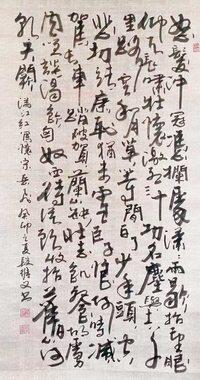 怒髮冲冠憑欄處瀟瀟雨歇抬望眼
仰天長嘯壯懷激烈三十功名塵與土八千
里路雲和月莫等閒白了少年頭空
悲切靖康恥猶未雪臣子恨何時滅
駕長車踏破賀蘭山缺壯志飢餐胡虜
肉笑談渴飲匈奴血待從頭收拾舊山河
朝天闕 滿江紅 宋岳飛 癸卯之夏